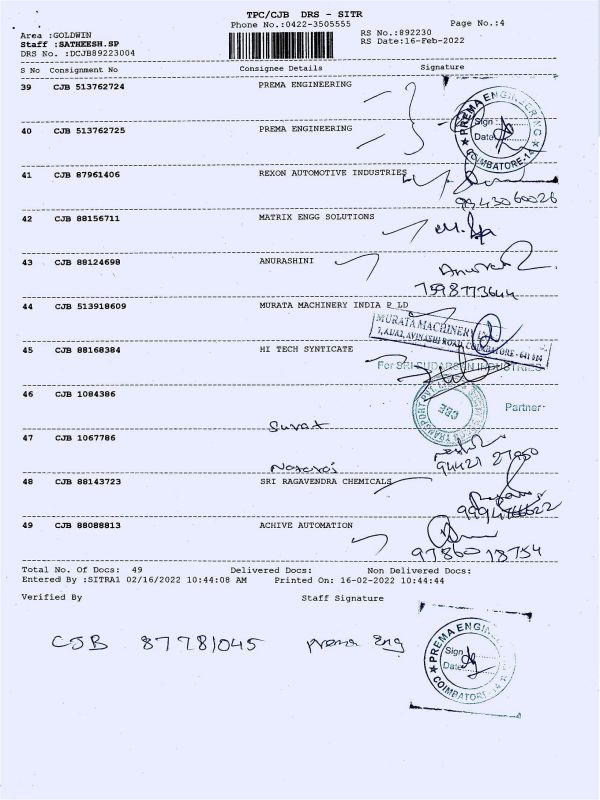 TPC/CJB DRS - SITR
Phone No.:0422-3505555 Page No.:4
Area :GOLDWIN RS No.:892230
Staff :SATHEESH.SP RS Date:16-Feb-2022
DRS No. :DCJB89223004
S No Consignment No Consignee Details Signature
39 CJB 513762724 PREMA ENGINEERING
PREMA ENGINEERING
Sign
Date
COIMBATORE-14
40 CJB 513762725 PREMA ENGINEERING
41 CJB 87961406 REXON AUTOMOTIVE INDUSTRIES
9943060026
42 CJB 88156711 MATRIX ENGG SOLUTIONS
43 CJB 88124698 ANURASHINI
7598773644
44 CJB 513918609 MURATA MACHINERY INDIA P LD
MURATA MACHINERY
AVINASHI ROAD, COIMBATORE - 641 014
45 CJB 88168384 HI TECH SYNTICATE
For SRI SUDARSUN INDUSTRIES
46 CJB 1084386
CBE
Partner
Surat
47 CJB 1067786
94421
48 CJB 88143723 SRI RAGAVENDRA CHEMICALS
49 CJB 88088813 ACHIVE AUTOMATION
97860 18754
Total No. Of Docs: 49 Delivered Docs: Non Delivered Docs:
Entered By :SITRA1 02/16/2022 10:44:08 AM Printed On: 16-02-2022 10:44:44
Verified By Staff Signature
CJB 87781045 Prema Eng
PREMA ENGIN
Sign
Date
COIMBATORE-14